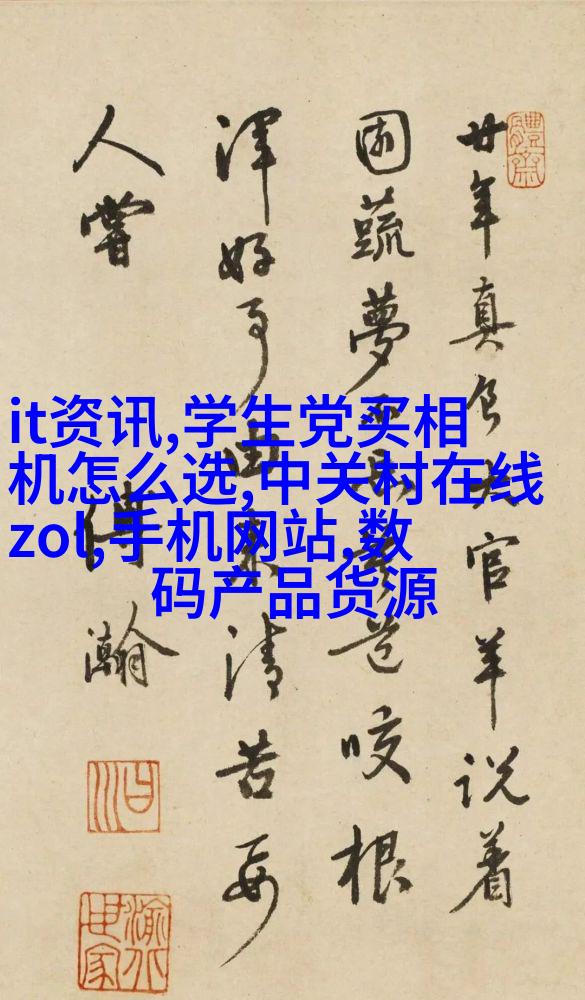 it资讯,学生党买相
机怎么选,中关村在线
zol,手机网站,数
码产品货源
廿年真食大官羊说着
園蔬夢道咬根
渾好事由来清苦要
人嘗
傅瀚